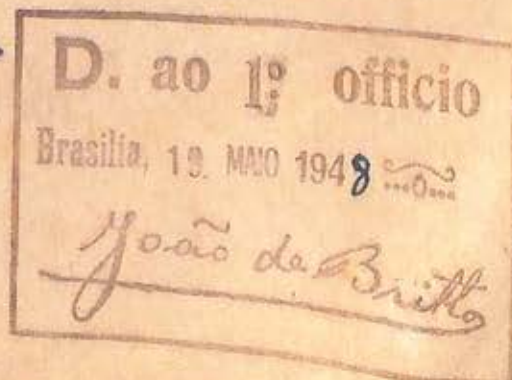 D. ao 1º officio
Brasilia, 19. MAIO 1948
João de Britto